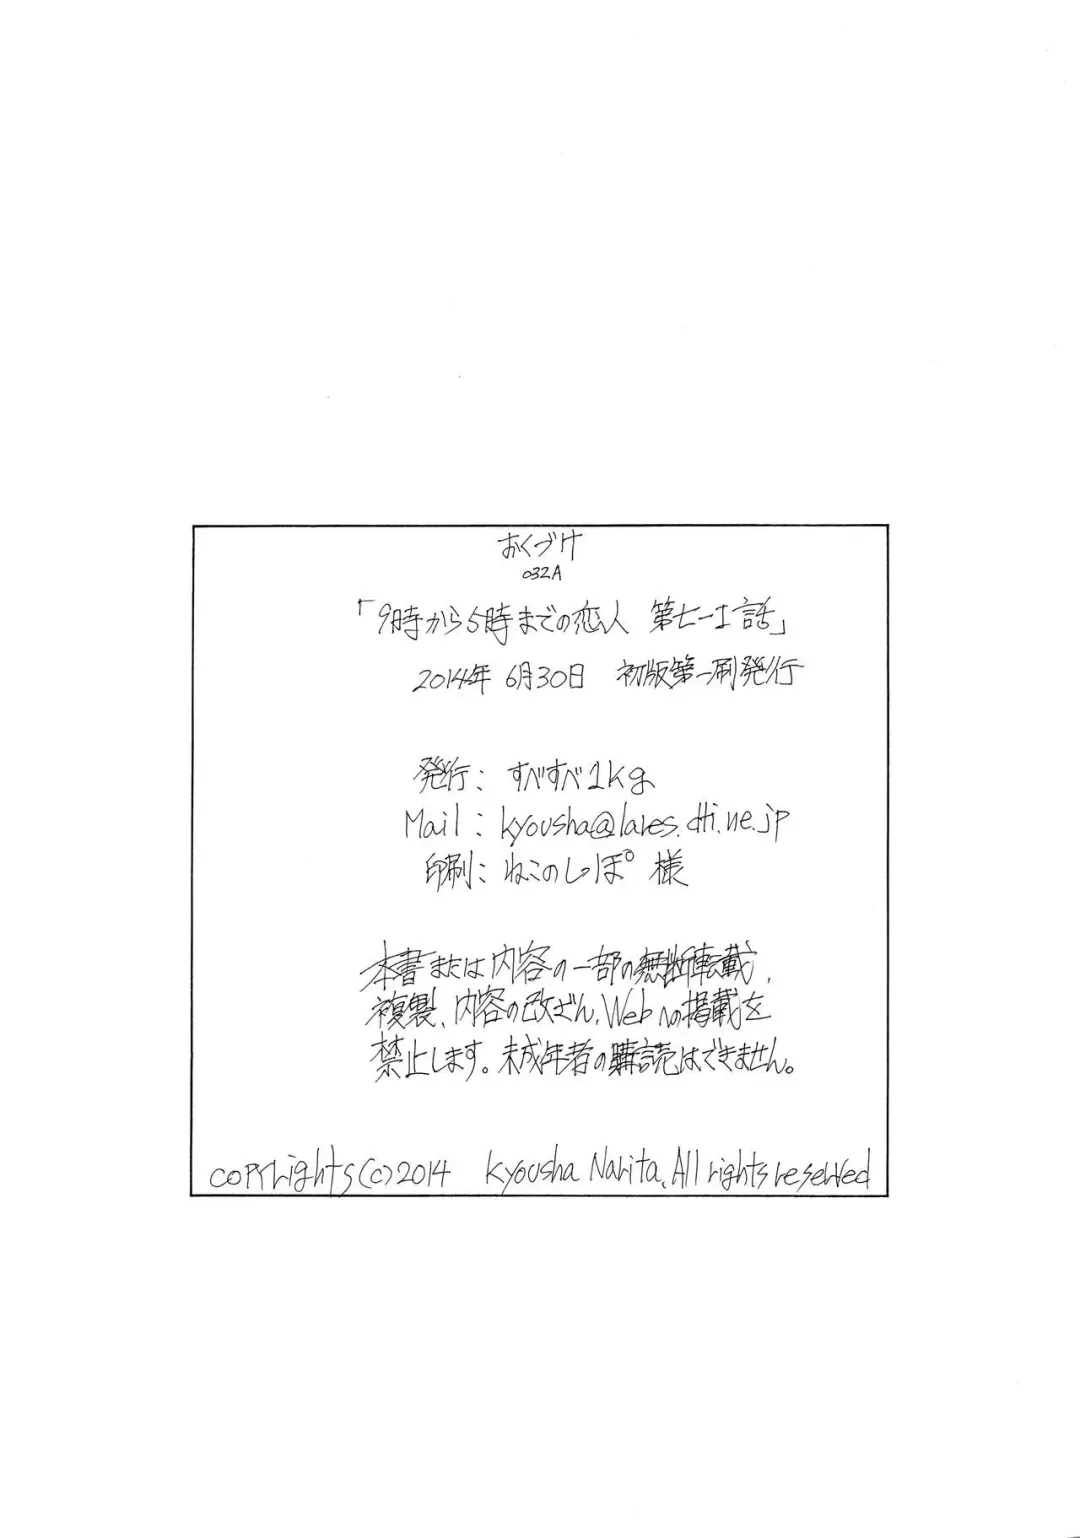 おくづけ
032A
「9時から5時までの恋人 第七-I話」
2014年 6月30日 初版第一刷発行
発行: すべすべ1kg
Mail: kyousha@lares.dti.ne.jp
印刷: ねこのしっぽ 様
本書または内容の一部の無断転載、
複製、内容の改ざん、Webへの掲載を
禁止します。未成年者の購読はできません。
copyrights(c)2014 kyousha Narita, All rights reserved